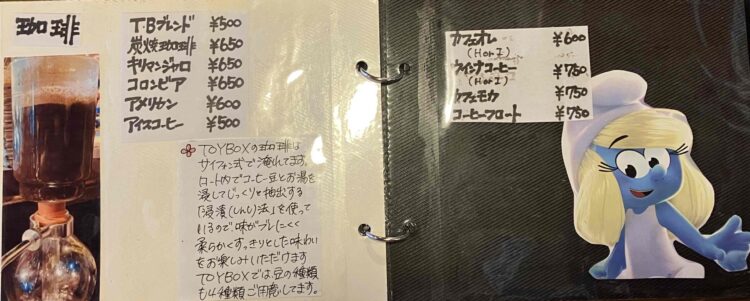 珈琲
T・Bブレンド ¥500
炭焼珈琲 ¥650
キリマンジャロ ¥650
コロンビア ¥650
アメリカン ¥600
アイスコーヒー ¥500
TOYBOXの珈琲は
サイフォン式で淹れてます。
ロート内でコーヒー豆とお湯を
浸してじっくりと抽出する
「浸漬(しんし)法」を使って
いるので味がブレにくく
柔らかくすっきりとした味わい
をお楽しみいただけます
TOYBOXでは豆の種類
も4種類ご用意してます。
カフェオレ ¥600
(HorI)
ウインナコーヒー ¥750
(HorI)
カフェモカ ¥750
コーヒーフロート ¥750